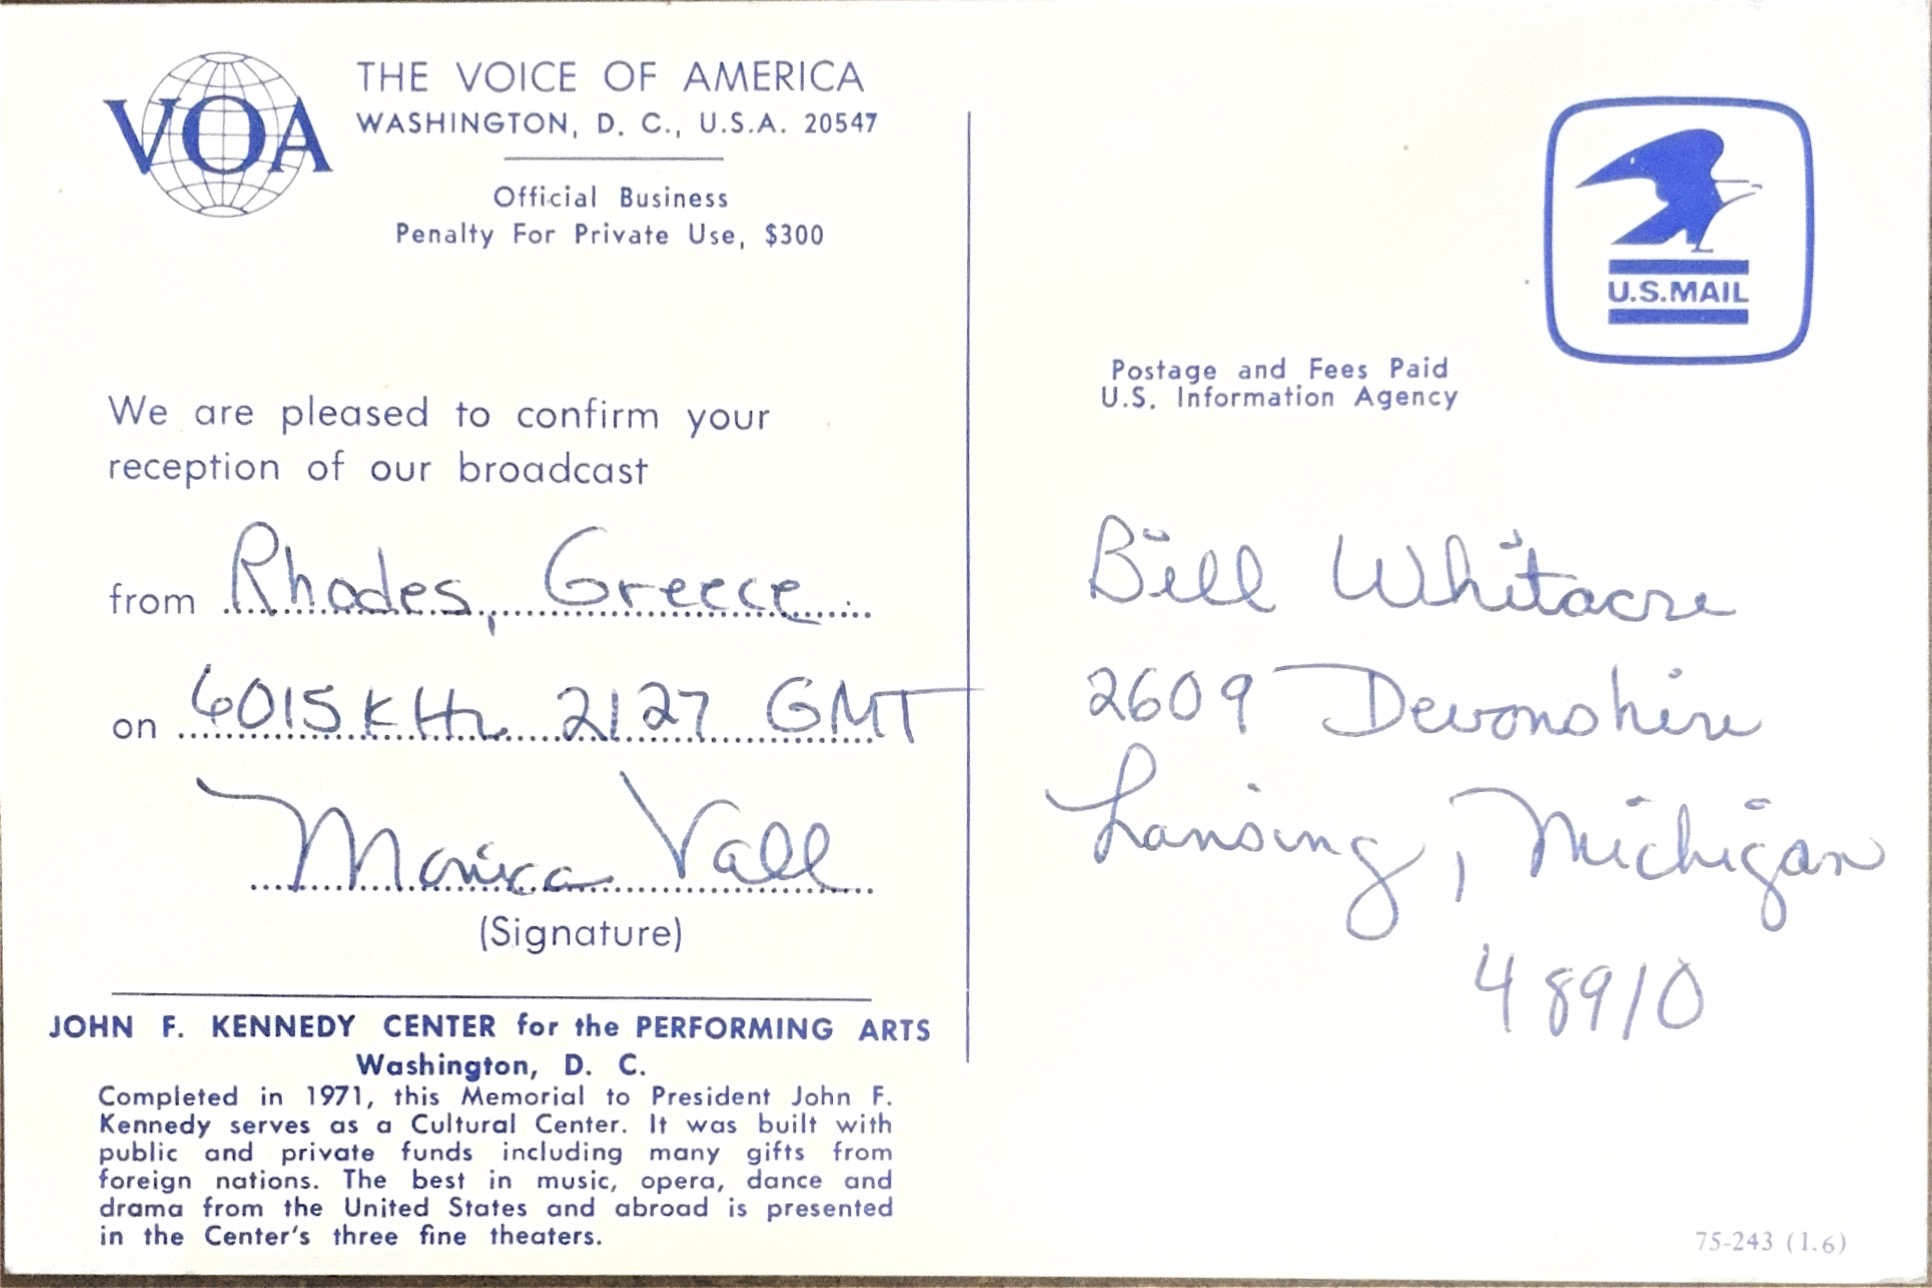 VOA
THE VOICE OF AMERICA
WASHINGTON, D. C., U.S.A. 20547
Official Business
Penalty For Private Use, $300
We are pleased to confirm your
reception of our broadcast
from Rhodes, Greece
on 6015 KHz 2127 GMT
Monica Vall
(Signature)
JOHN F. KENNEDY CENTER for the PERFORMING ARTS
Washington, D. C.
Completed in 1971, this Memorial to President John F.
Kennedy serves as a Cultural Center. It was built with
public and private funds including many gifts from
foreign nations. The best in music, opera, dance and
drama from the United States and abroad is presented
in the Center's three fine theaters.
U.S.MAIL
Postage and Fees Paid
U.S. Information Agency
Bill Whitacre
2609 Devonshire
Lansing, Michigan
48910
75-243 (1.6)